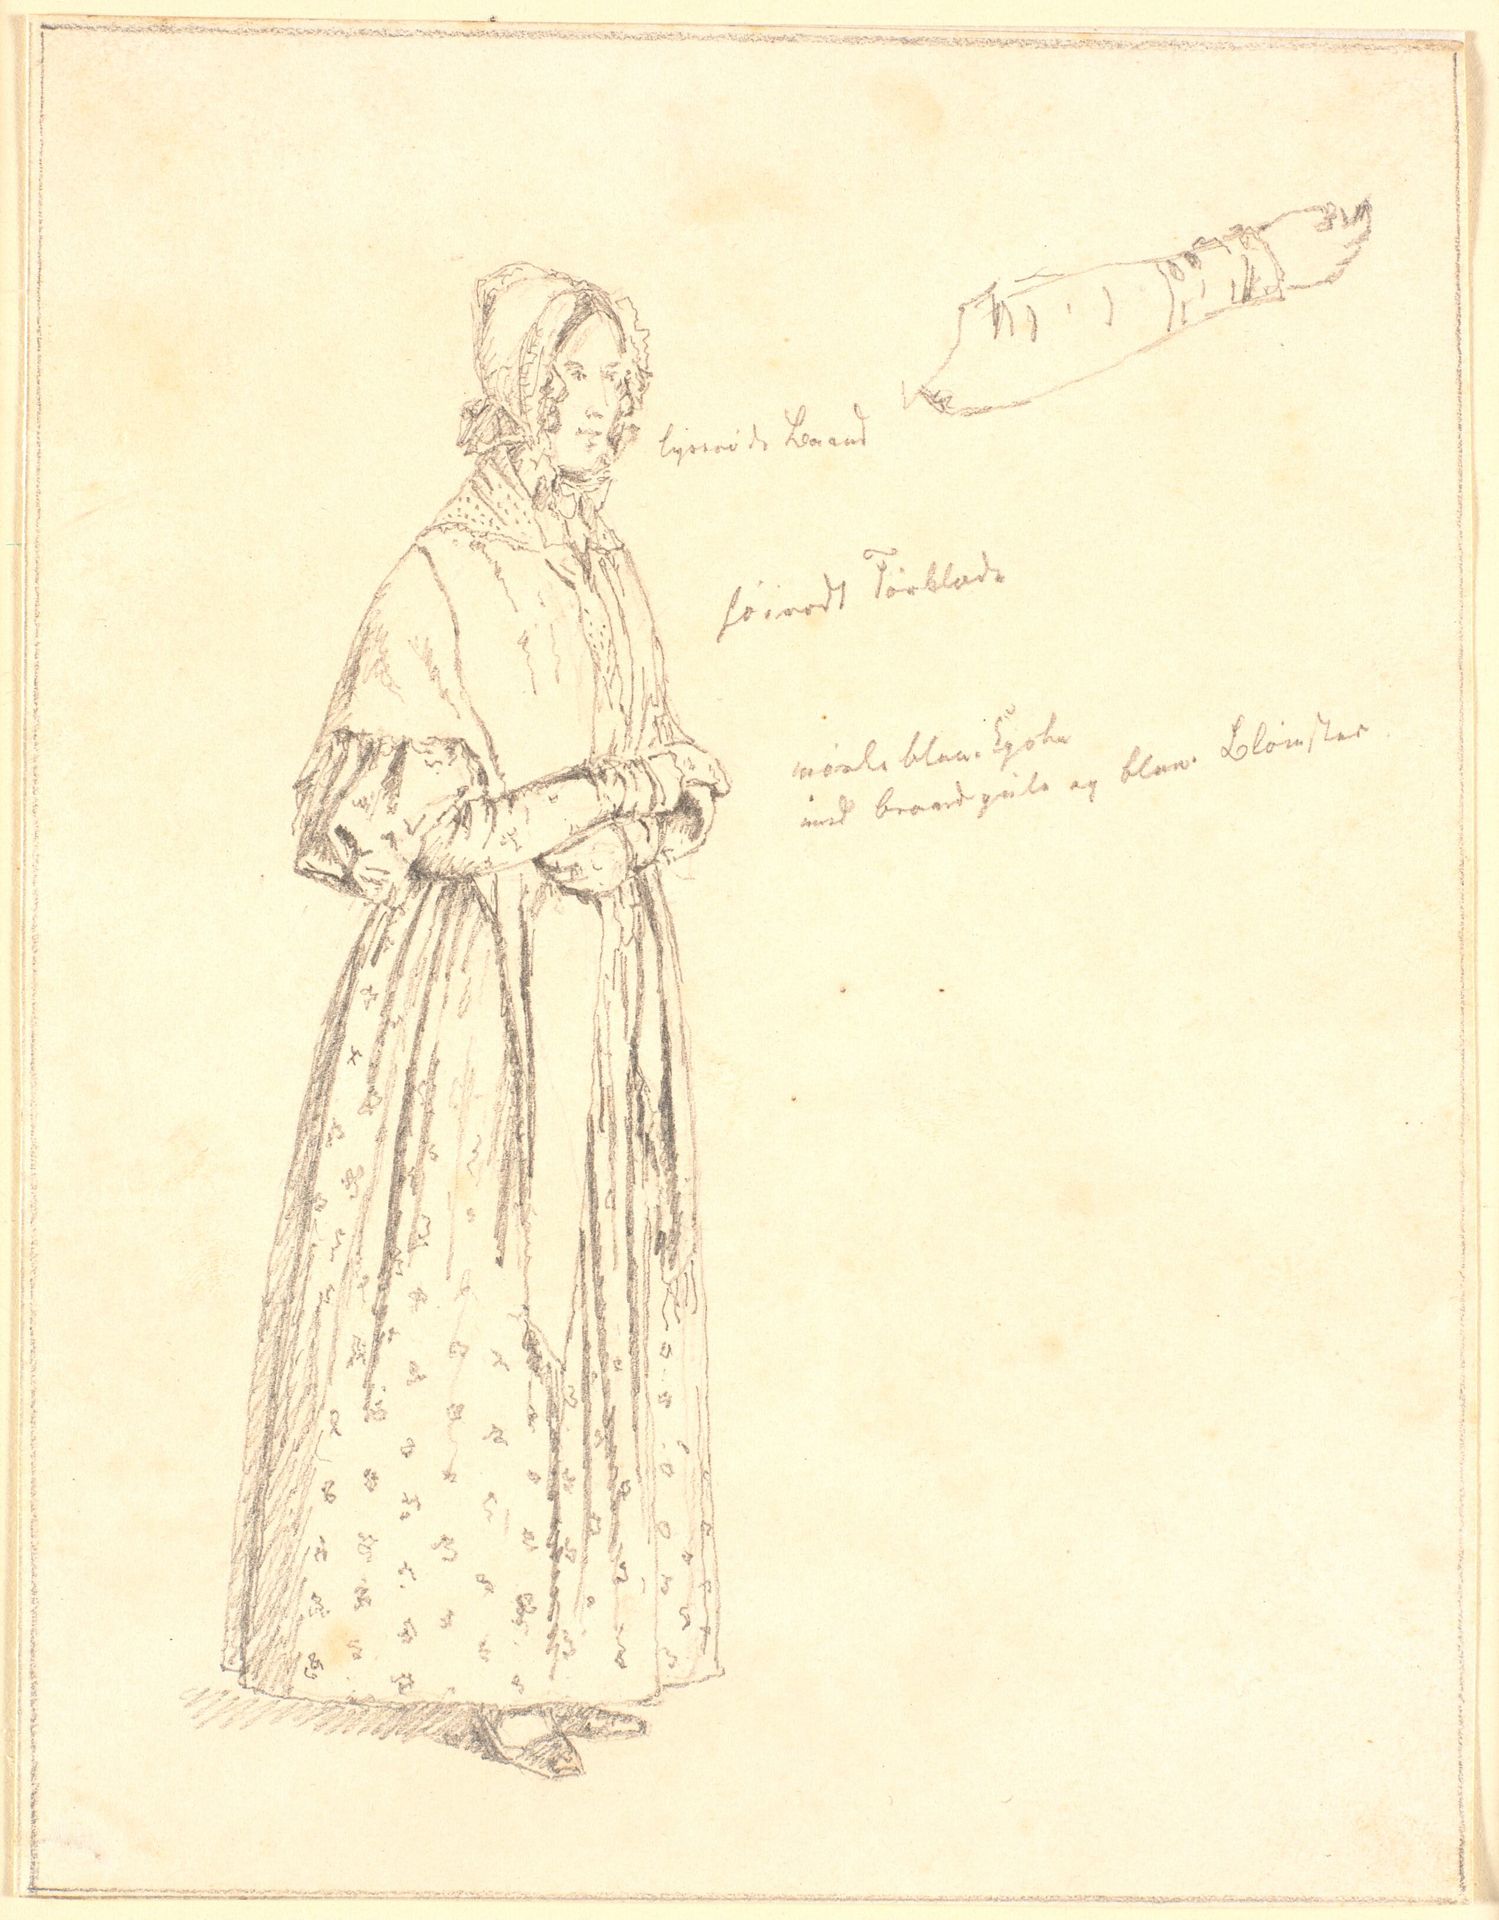 lyserøde Baand
høirødt Tørklæde
mørkeblaa Kjole
med brandgule og blaa Blomster